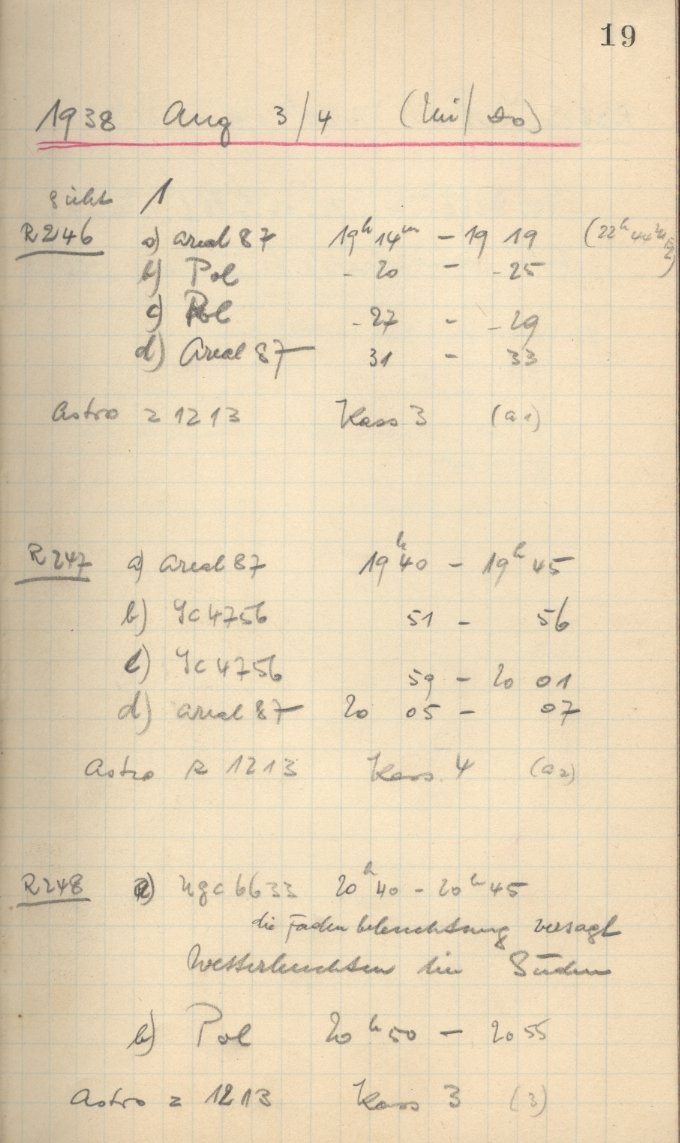 19
1938 Aug 3/4 (Mi/Do)
Sicht 1
R246 a) Areal 87 19h 14m - 19 19 (22h 44m
b) Pol - 20 - - 25
c) Pol - 27 - - 29
d) Areal 87 31 - 33
Astro 1213 Kass 3 (a1)
R247 a) Areal 87 19h 40 - 19h 45
b) Ic 4756 51 - 56
c) Ic 4756 59 - 20 01
d) Areal 87 20 05 - 07
Astro R 1213 Kass 4 (a2)
R248 a) Ngc 6633 20h 40 - 20h 45
die Fadenbeleuchtung versagt
Wetterleuchten im Süden
b) Pol 20h 50 - 20 55
Astro 1213 Kass 3 (3)